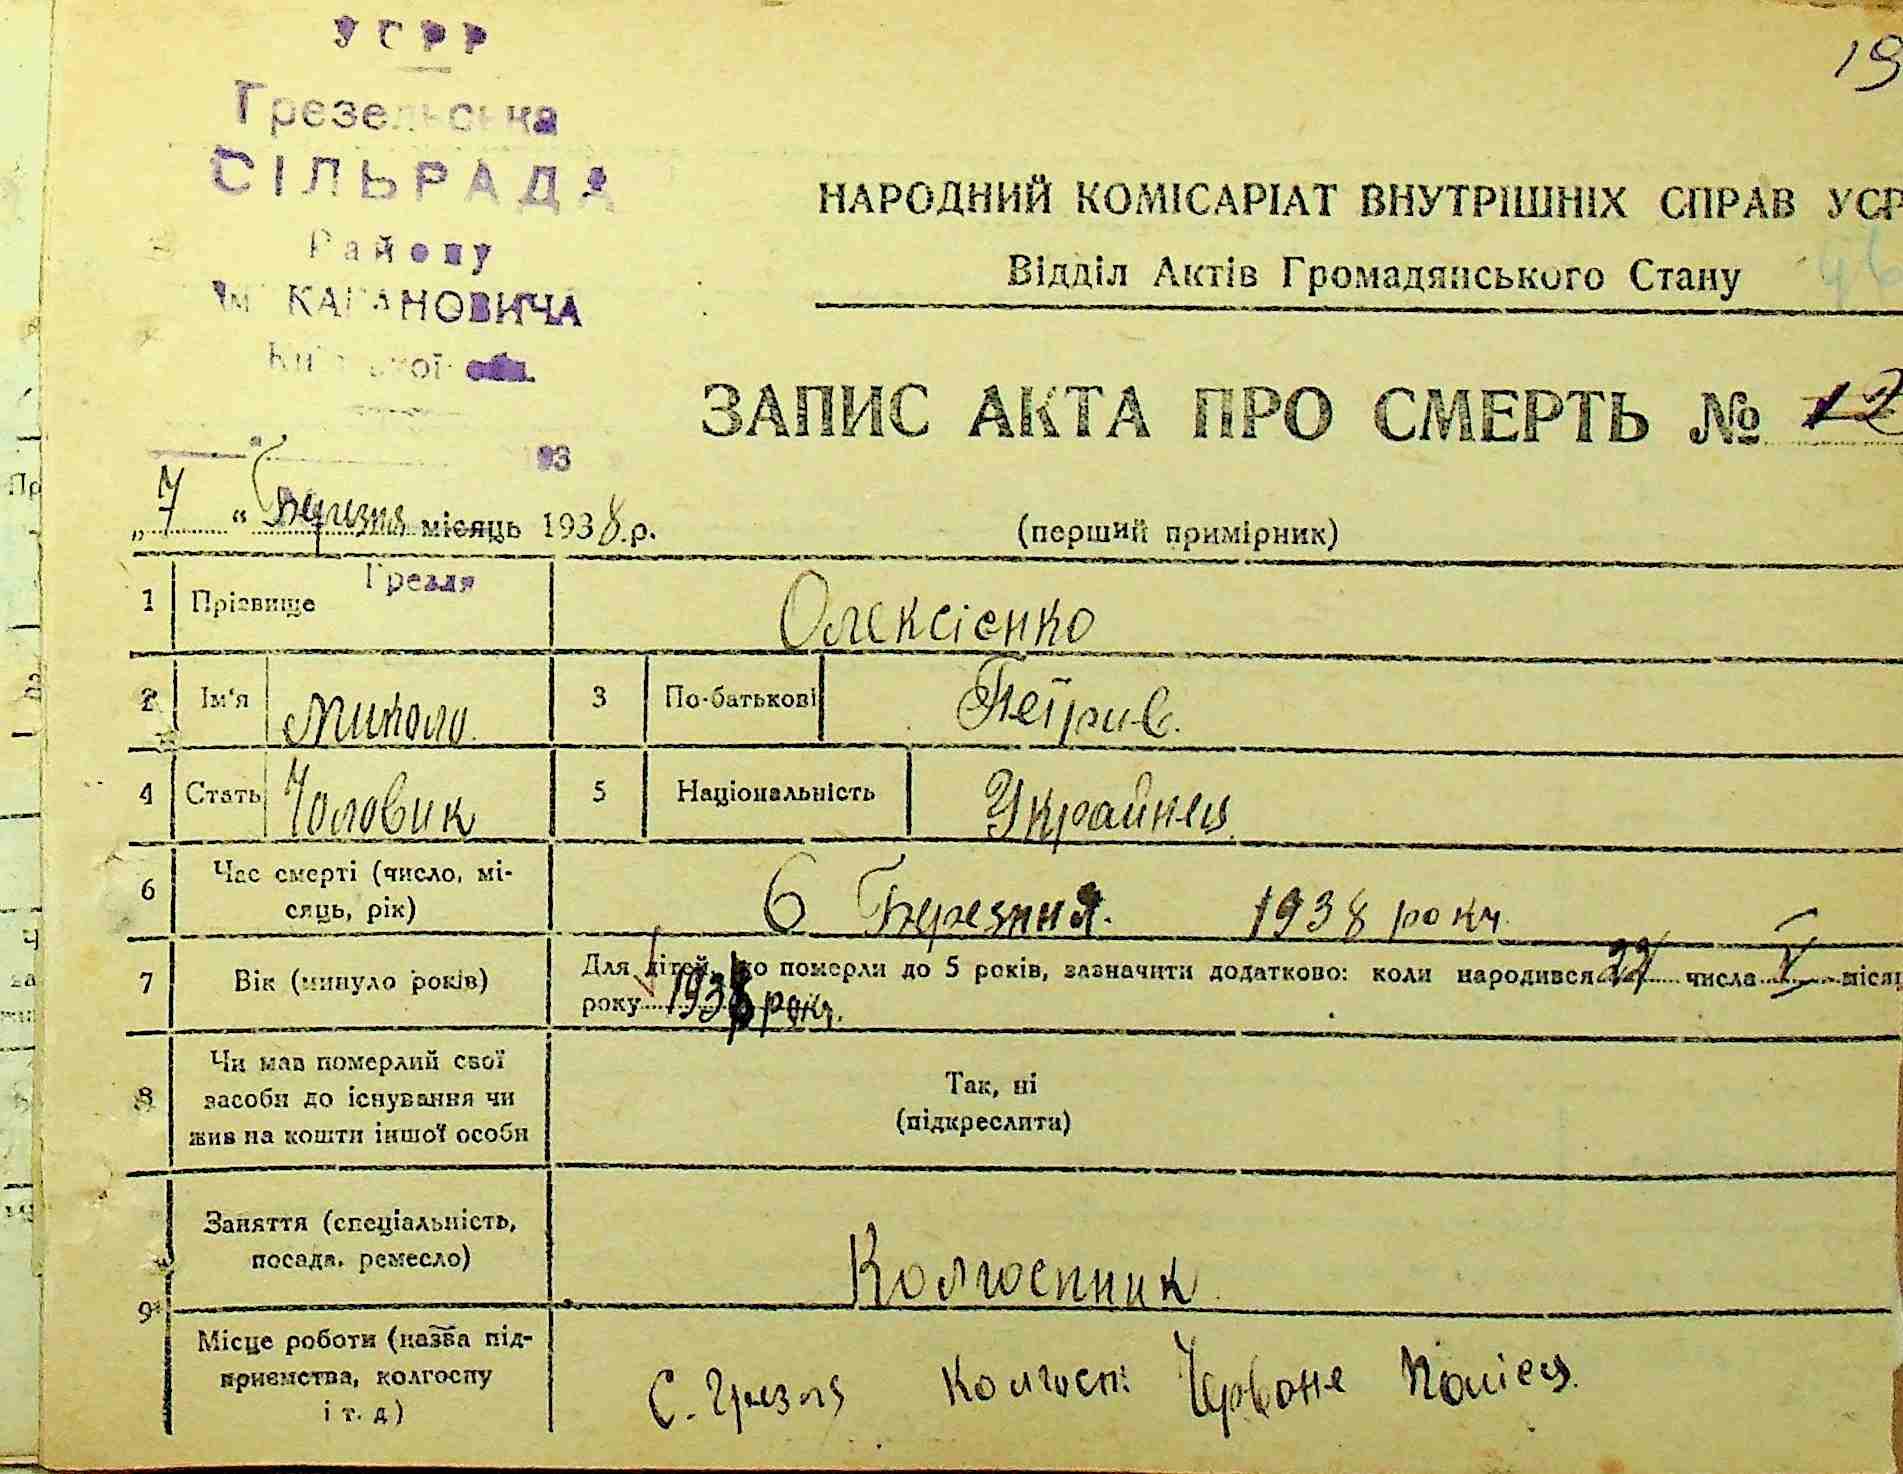 УСРР
19
Грезельська
СІЛЬРАДА
Району
ім КАГАНОВИЧА
Київської обл.
193
НАРОДНИЙ КОМІСАРІАТ ВНУТРІШНІХ СПРАВ УСР
Відділ Актів Громадянського Стану
ЗАПИС АКТА ПРО СМЕРТЬ № 12
„7“ Березня місяць 1938 р.
(перший примірник)
Грезля
1 Прізвище Олексієнко
2 Ім'я Микола 3 По-батькові Петров.
4 Стать Чоловик 5 Національність Украйнец
6 Час смерті (число, мі-
сяць, рік) 6 Березния. 1938 року.
7 Вік (минуло років) Для дітей, що померли до 5 років, зазначити додатково: коли народився 22 числа V місяц
року 1938 року.
8 Чи мав померлий свої
засоби до існування чи
жив на кошти іншої особи
Так, ні
(підкреслити)
9 Заняття (спеціальність,
посада, ремесло) Колгоспник
Місце роботи (назва під-
приємства, колгоспу
і т. д)
С. Грезля Колгосп: Червоне Полісся